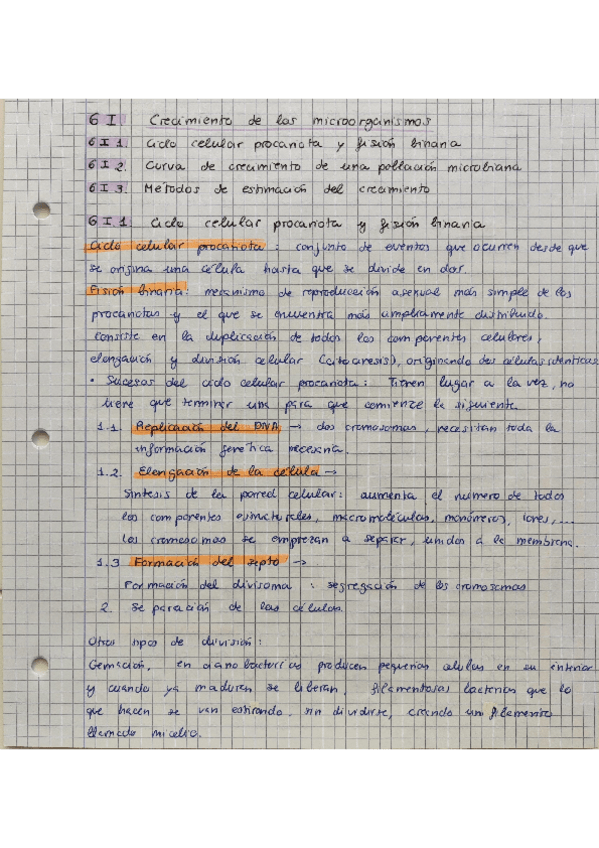 6 I. Crecimiento de los microorganismos
6 I 1. Ciclo celular procariota y fisión binaria
6 I 2. Curva de crecimiento de una población microbiana
6 I 3. Métodos de estimación del crecimiento
6 I.1 Ciclo celular procariota y fisión binaria
Ciclo celular procariota: conjunto de eventos que ocurren desde que
se origina una célula hasta que se divide en dos.
Fisión binaria: mecanismo de reproducción asexual más simple de los
procariotas y el que se encuentra más ampliamente distribuido.
Consiste en la duplicación de todos los componentes celulares,
elongación y división celular (citocinesis), originando dos células idénticas.
• Sucesos del ciclo celular procariota: Tienen lugar a la vez, no
tiene que terminar una para que comience la siguiente.
1.1. Replicación del DNA → dos cromosomas, necesitan toda la
información genética necesaria.
1.2. Elongación de la célula →
Síntesis de la pared celular: aumenta el numero de todos
los componentes estructurales, macromoléculas, monómeros, iones,...
Los cromosomas se empiezan a separar, unidos a la membrana.
1.3 Formación del septo →
Formación del divisoma: segregación de los cromosomas
2. Separación de las células.
Otros tipos de división:
Gemación, en cianobacterias producen pequeñas células en su interior
y cuando ya maduren se liberan, filamentosas bacterias que lo
que hacen se van estirando, sin dividirse, creando un filamento
llamado micelio.